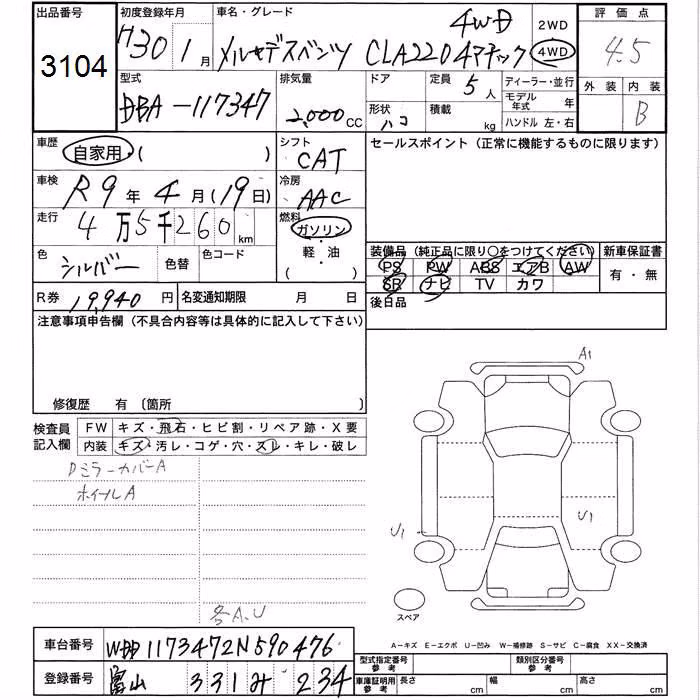 出品番号 初度登録年月 車名・グレード 4WD 2WD 評価点
3104 H30 1月 メルセデスベンツ CLA220 4マチック 4WD 4.5
型式 排気量 ドア 定員 5人 ディーラー・並行 外装 内装
DBA-117347 2,000cc 形状 ハコ 積載 kg モデル年式 年 B
ハンドル 左・右
車歴 自家用・( ) シフト CAT セールスポイント (正常に機能するものに限ります)
車検 R9年4月(19日) 冷房 AAC
走行 4万5千260km 燃料 ガソリン・軽・油 ( )
色 シルバー 色替 色コード 装備品 (純正品に限り○をつけてください) 新車保証書
PS PW ABS エアB AW 有・無
SR ナビ TV カワ
R券 19,940円 名変通知期限 月 日 後日品
注意事項申告欄 (不具合内容等は具体的に記入して下さい)
修復歴 有 〔箇所 〕
検査員記入欄 FW キズ・飛石・ヒビ割・リペア跡・X要
内装 キズ・汚レ・コゲ・穴・スレ・キレ・破レ
DミラーカバーA
ホイルA
各A.U
A1
U1
U1
スペア
A-キズ E-エクボ U-凹み W-補修跡 S-サビ C-腐食 XX-交換済
車台番号 WDD1173472N590476
型式指定番号 参考 類別区分番号 参考
登録番号 富山 331 み 234
車庫証明用 参考 長さ cm 幅 cm 高さ cm